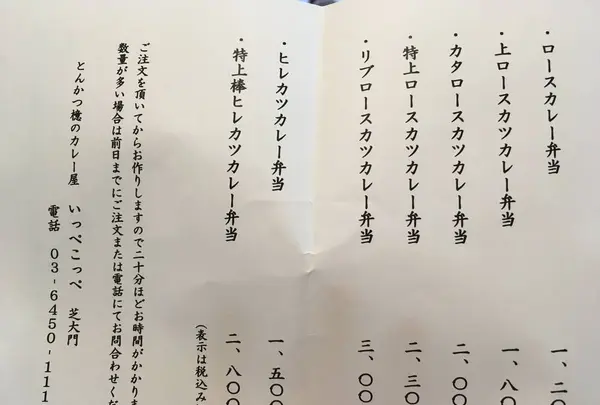 ・ロースカレー弁当 一、二〇
・上ロースカツカレー弁当 一、八〇
・カタロースカツカレー弁当 二、〇〇
・特上ロースカツカレー弁当 二、三〇
・リブロースカツカレー弁当 三、〇〇
・ヒレカツカレー弁当 一、五〇〇
・特上棒ヒレカツカレー弁当 二、八〇〇
(表示は税込み
ご注文を頂いてからお作りしますので二十分ほどお時間がかかりま
数量が多い場合は前日までにご注文または電話にてお問合わせくだ
とんかつ檍のカレー屋 いっぺこっぺ 芝大門
電話 03-6450-111